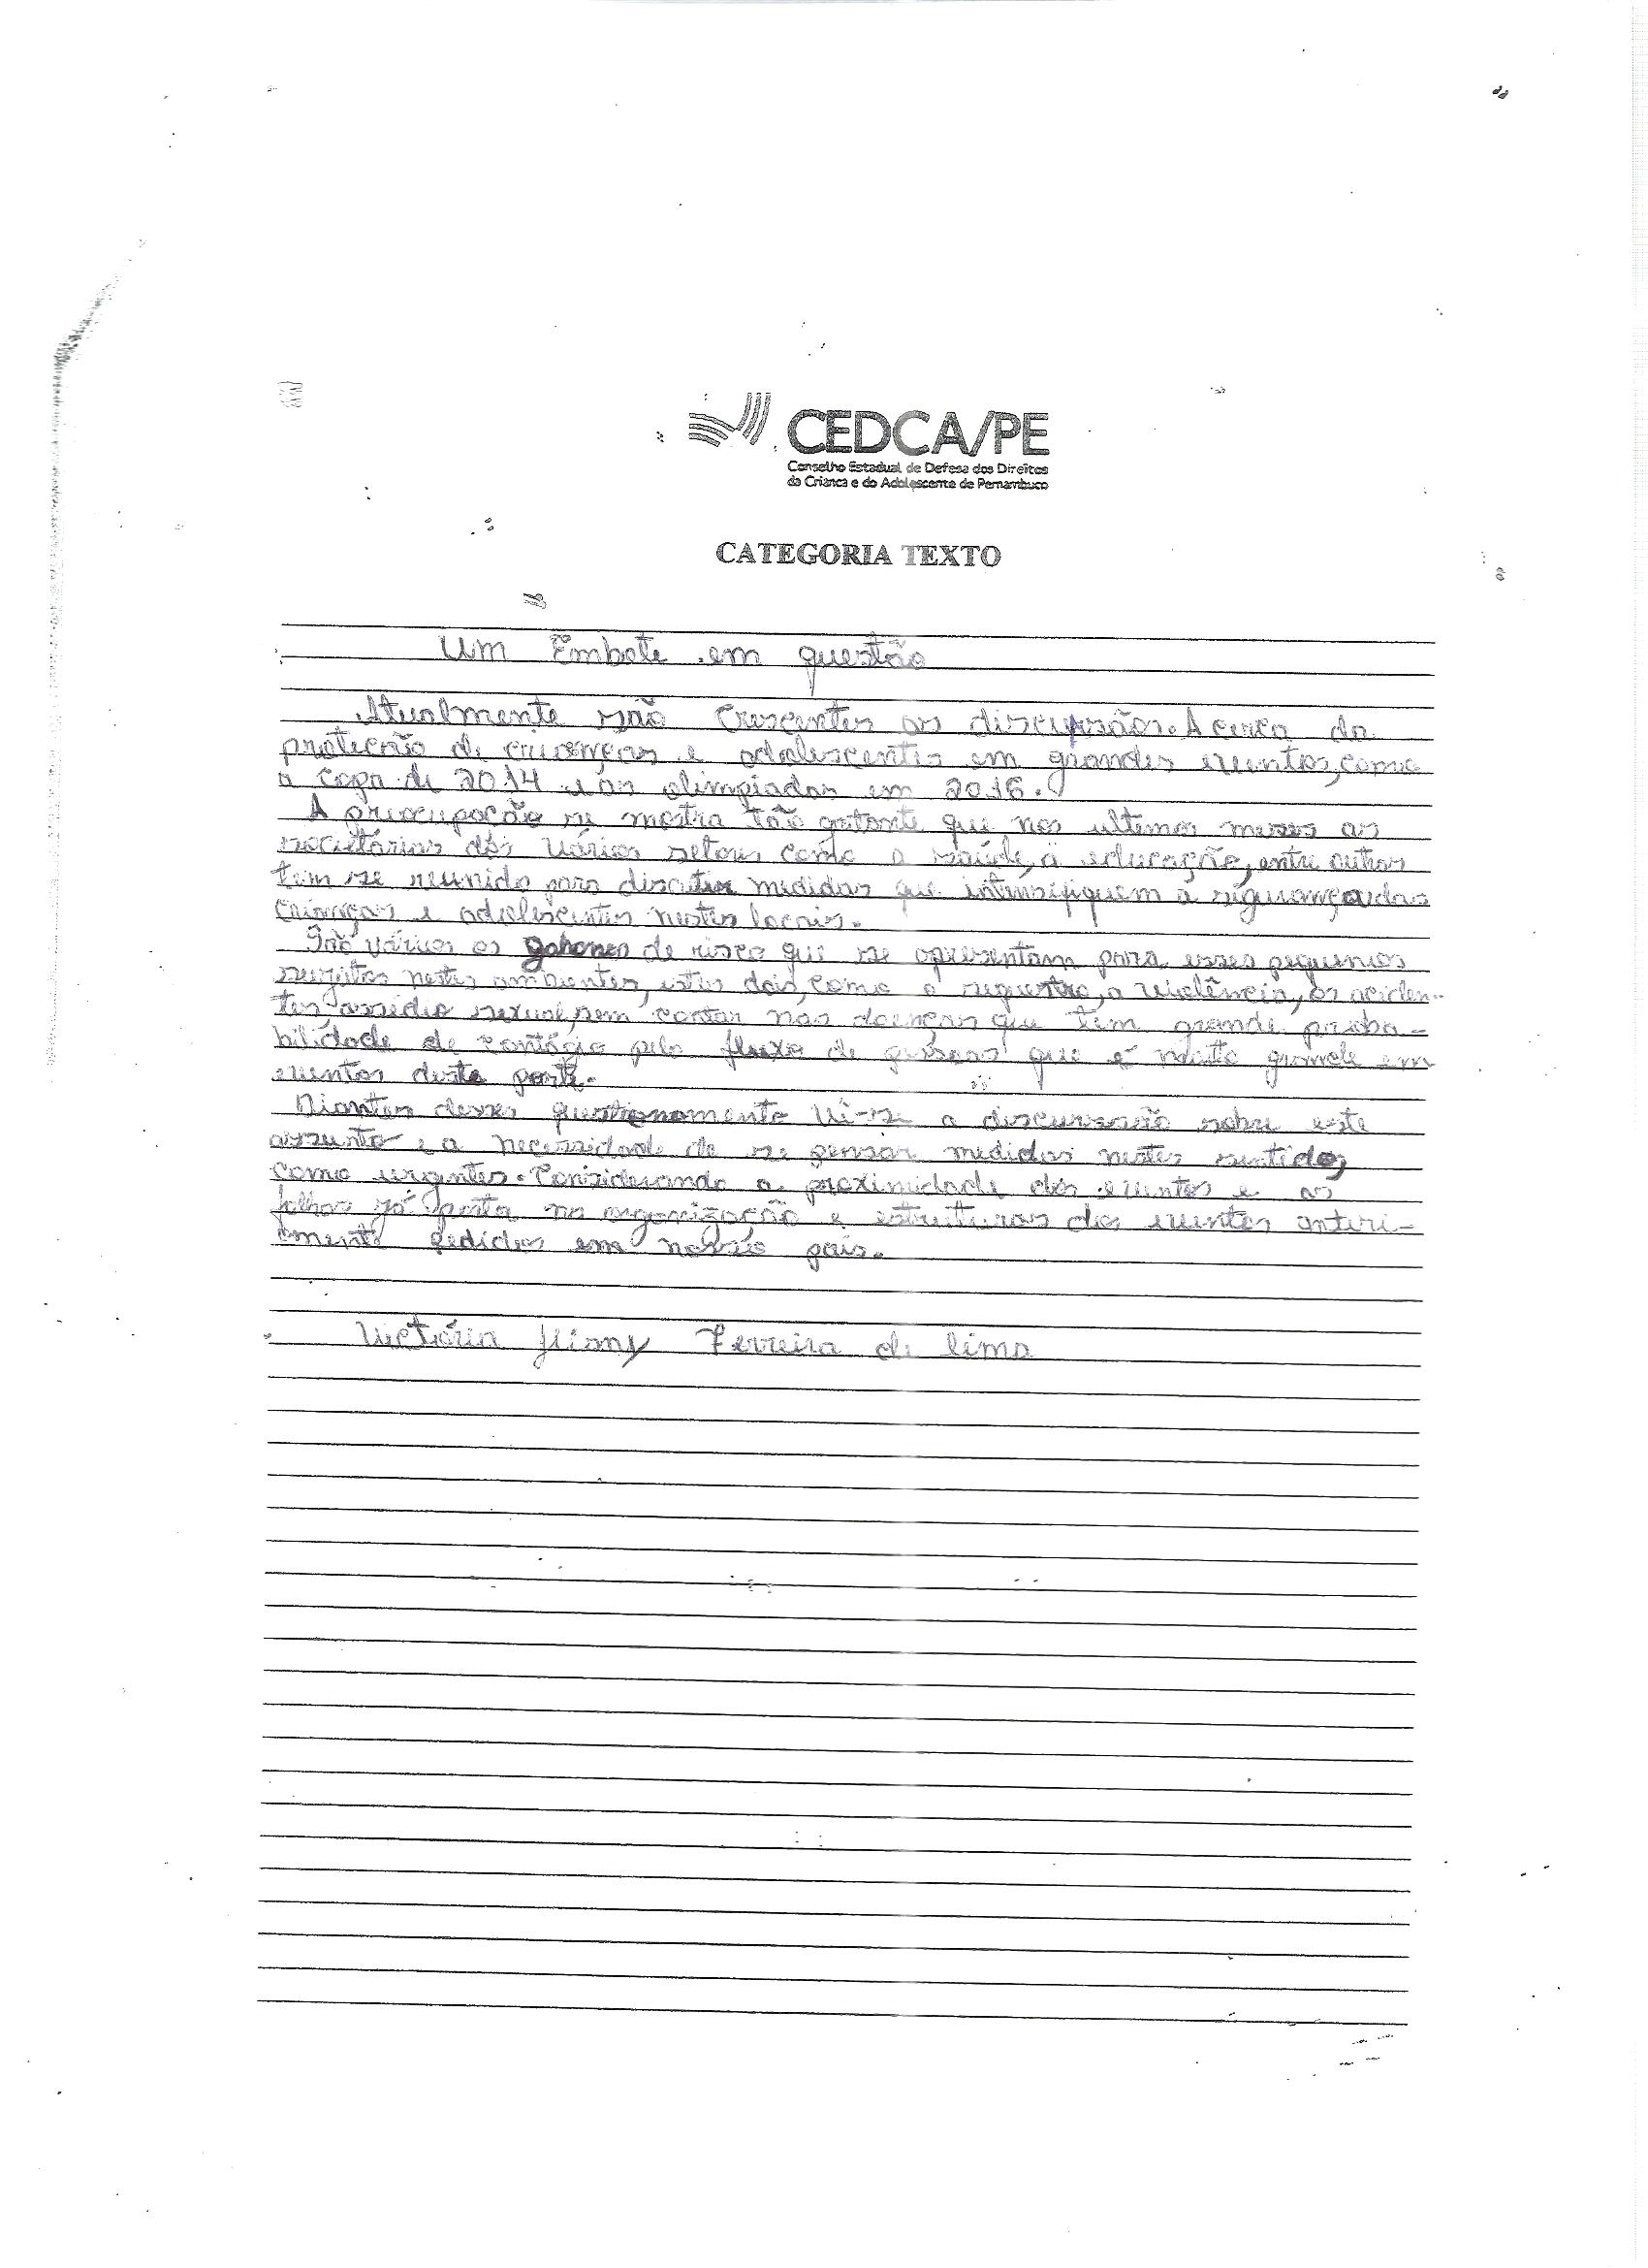 CEDCA/PE
Conselho Estadual de Defesa dos Direitos
da Criança e do Adolescente de Pernambuco
CATEGORIA TEXTO
Um Embate em questão
Atualmente são crescentes as discurssãos. A cerca da
proteção de crianças e adolescentes em grandes eventos, como
a copa de 2014 e as olimpiadas em 2016.
A preocupação se mostra tão gritante que nos ultimos meses as
societárias dos vários setores como a saúde, a educação, entre outras
tem se reunido para discutir medidas que intensifiquem a segurança das
crianças e adolescentes nestes locais.
São vários os de risco que se apresentam para esses pequenos
sujeitos nestes ambientes, estes dois, como o sequestro, a violência, os aciden-
tes, assédio sexual, sem contar nas doenças que tem grande proba-
bilidade de contágio pelo fluxo de pessoas que é muito grande em
eventos deste porte.
Diantes desses questionamento vê-se a discurssão sobre este
assunto e a necessidade de se pensar medidas nestes sentido,
como urgentes. Considerando a proximidade dos eventos e as
falhas já posta na organização e estruturas dos eventos anteri-
omente sedidos em nosso país.
Victória Ferreira de lima